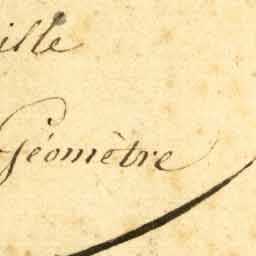 ille
Géomètre